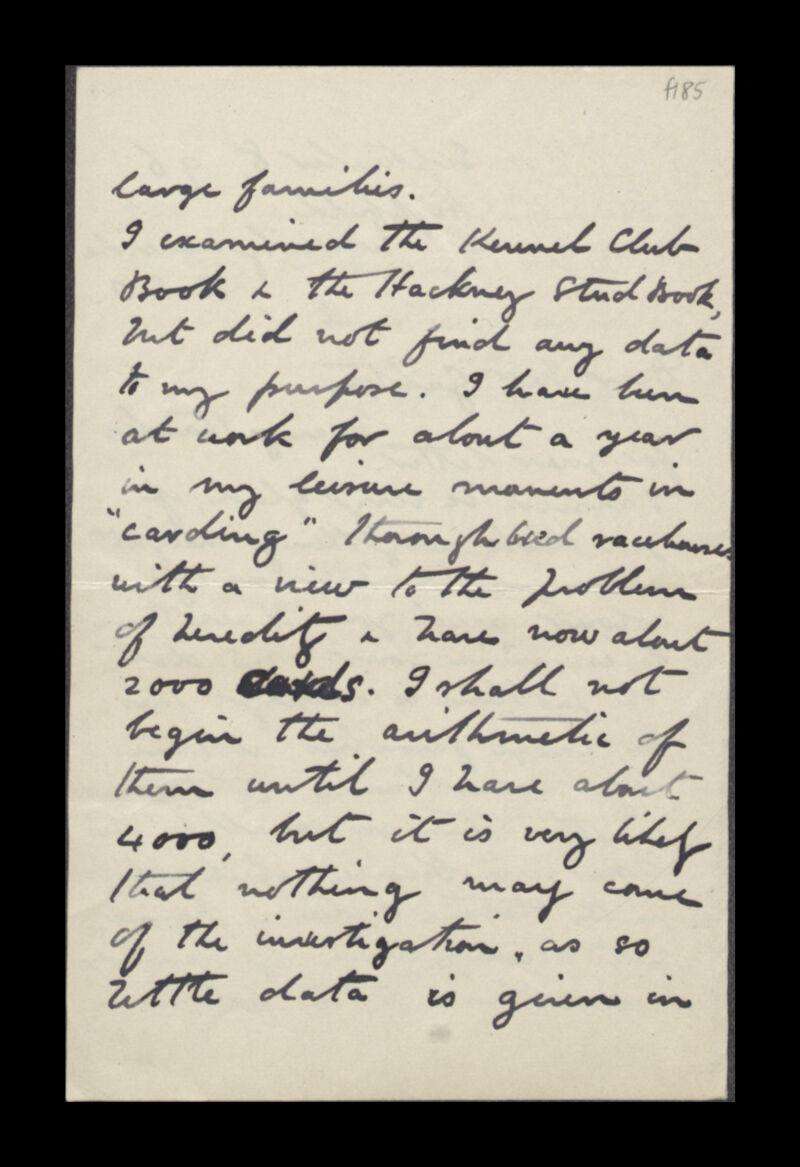 f185
large families.
I examined the Kennel Club
Book & the Hackney Stud Book,
but did not find any data
to my purpose. I have been
at work for about a year
in my leisure moments in
"carding" thoroughbred racehorses
with a view to the problem
of heredity & have now about
2000 cards. I shall not
begin the arithmetic of
them until I have about
4000, but it is very likely
that nothing may come
of the investigation, as so
little data is given in